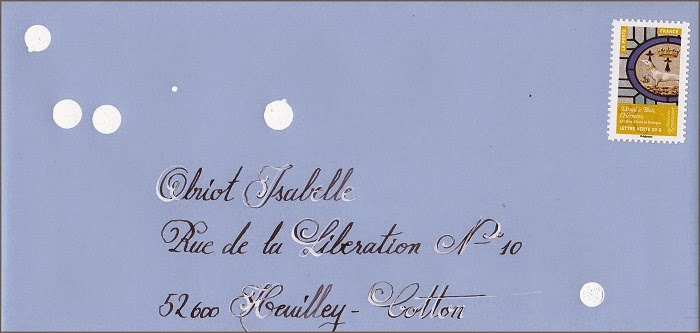 LA POSTE FRANCE
LETTRE VERTE 20 g
Obriot Isabelle
Rue de la Liberation N° 10
52600 Heuilley - Cotton